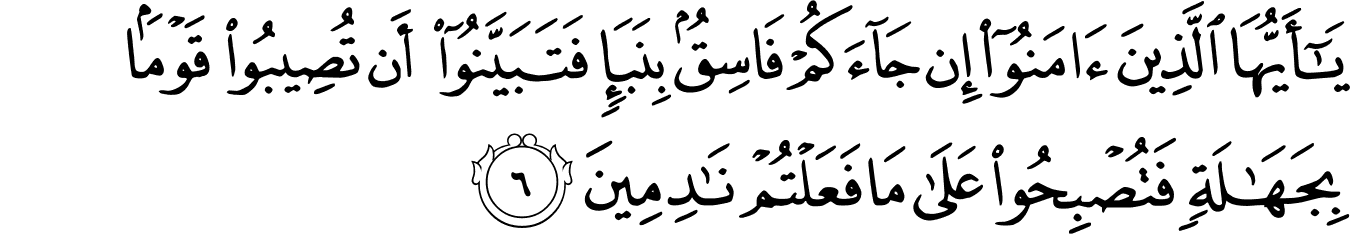 يَـٰٓأَيُّهَا ٱلَّذِينَ ءَامَنُوٓا۟ إِن جَآءَكُمْ فَاسِقٌۢ بِنَبَإٍ فَتَبَيَّنُوٓا۟ أَن تُصِيبُوا۟ قَوْمًۢا
بِجَهَـٰلَةٍ فَتُصْبِحُوا۟ عَلَىٰ مَا فَعَلْتُمْ نَـٰدِمِينَ ٦